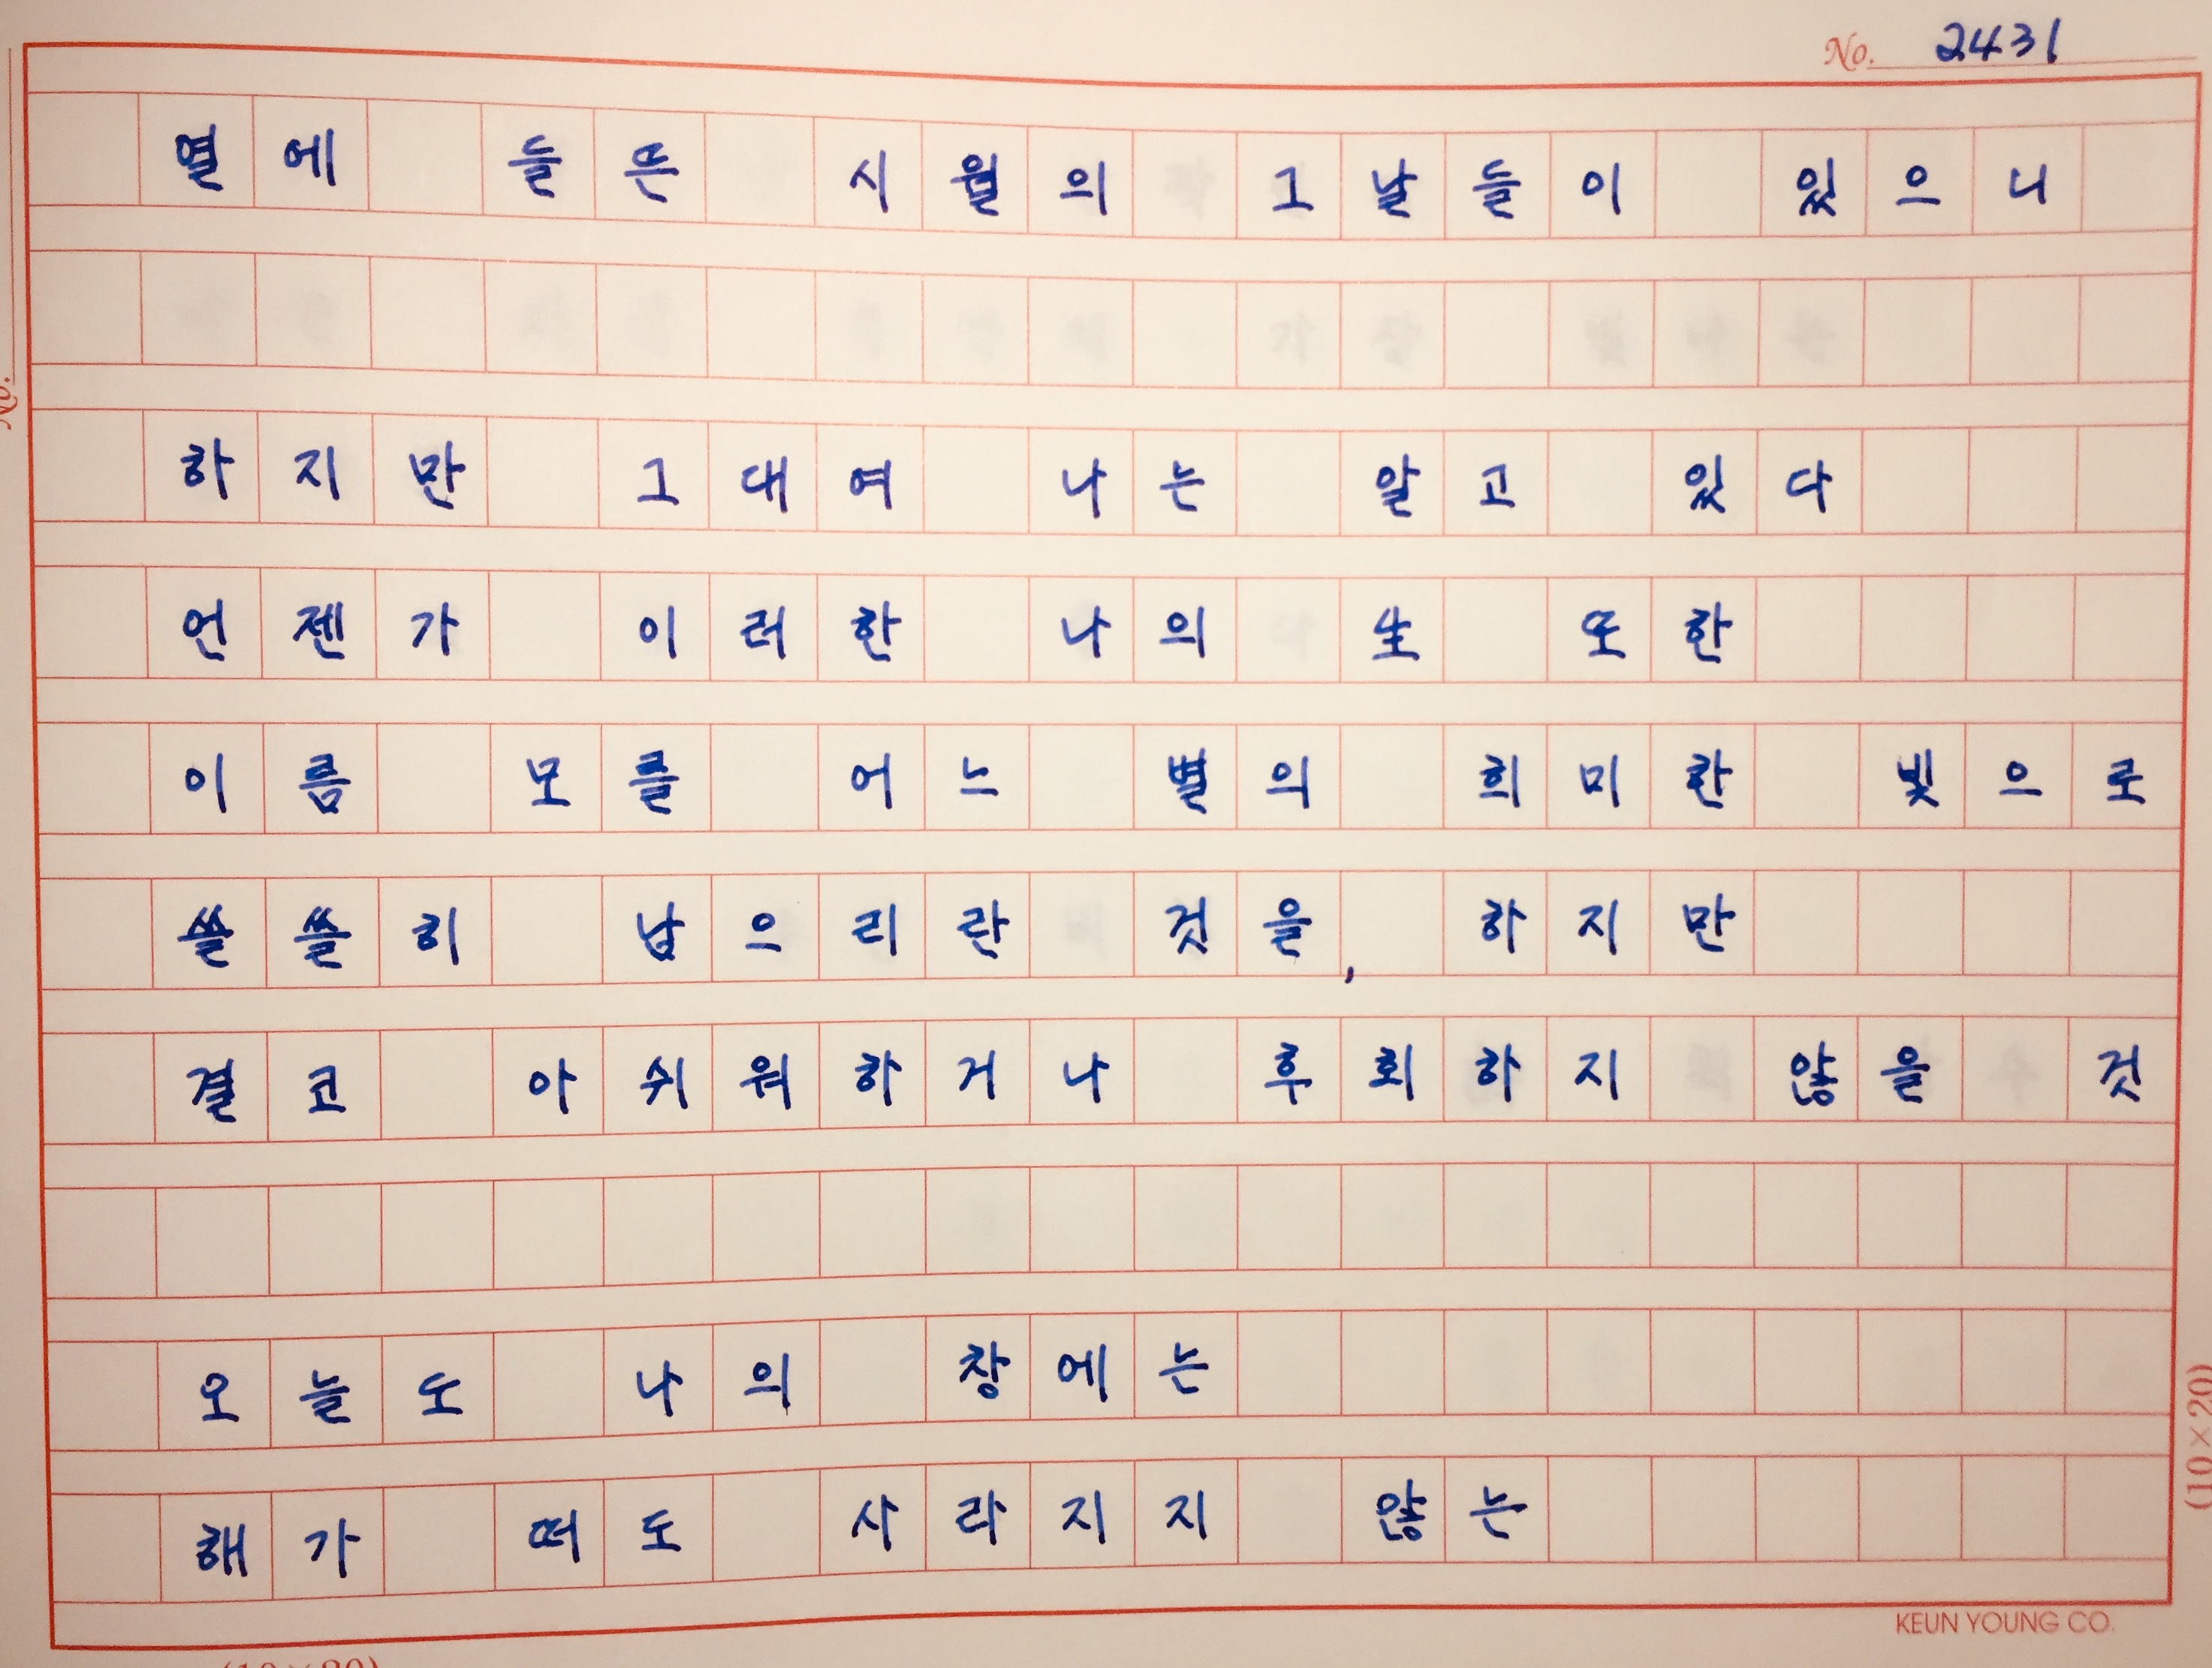 No. 2431
열에 들뜬 시월의 그날들이 있으니
하지만 그대여 나는 알고 있다
언젠가 이러한 나의 生 또한
이름 모를 어느 별의 희미한 빛으로
쓸쓸히 남으리란 것을, 하지만
결코 아쉬워하거나 후회하지 않을 것
오늘도 나의 창에는
해가 떠도 사라지지 않는
KEUN YOUNG CO.
(10×20)
No.
(10×20)